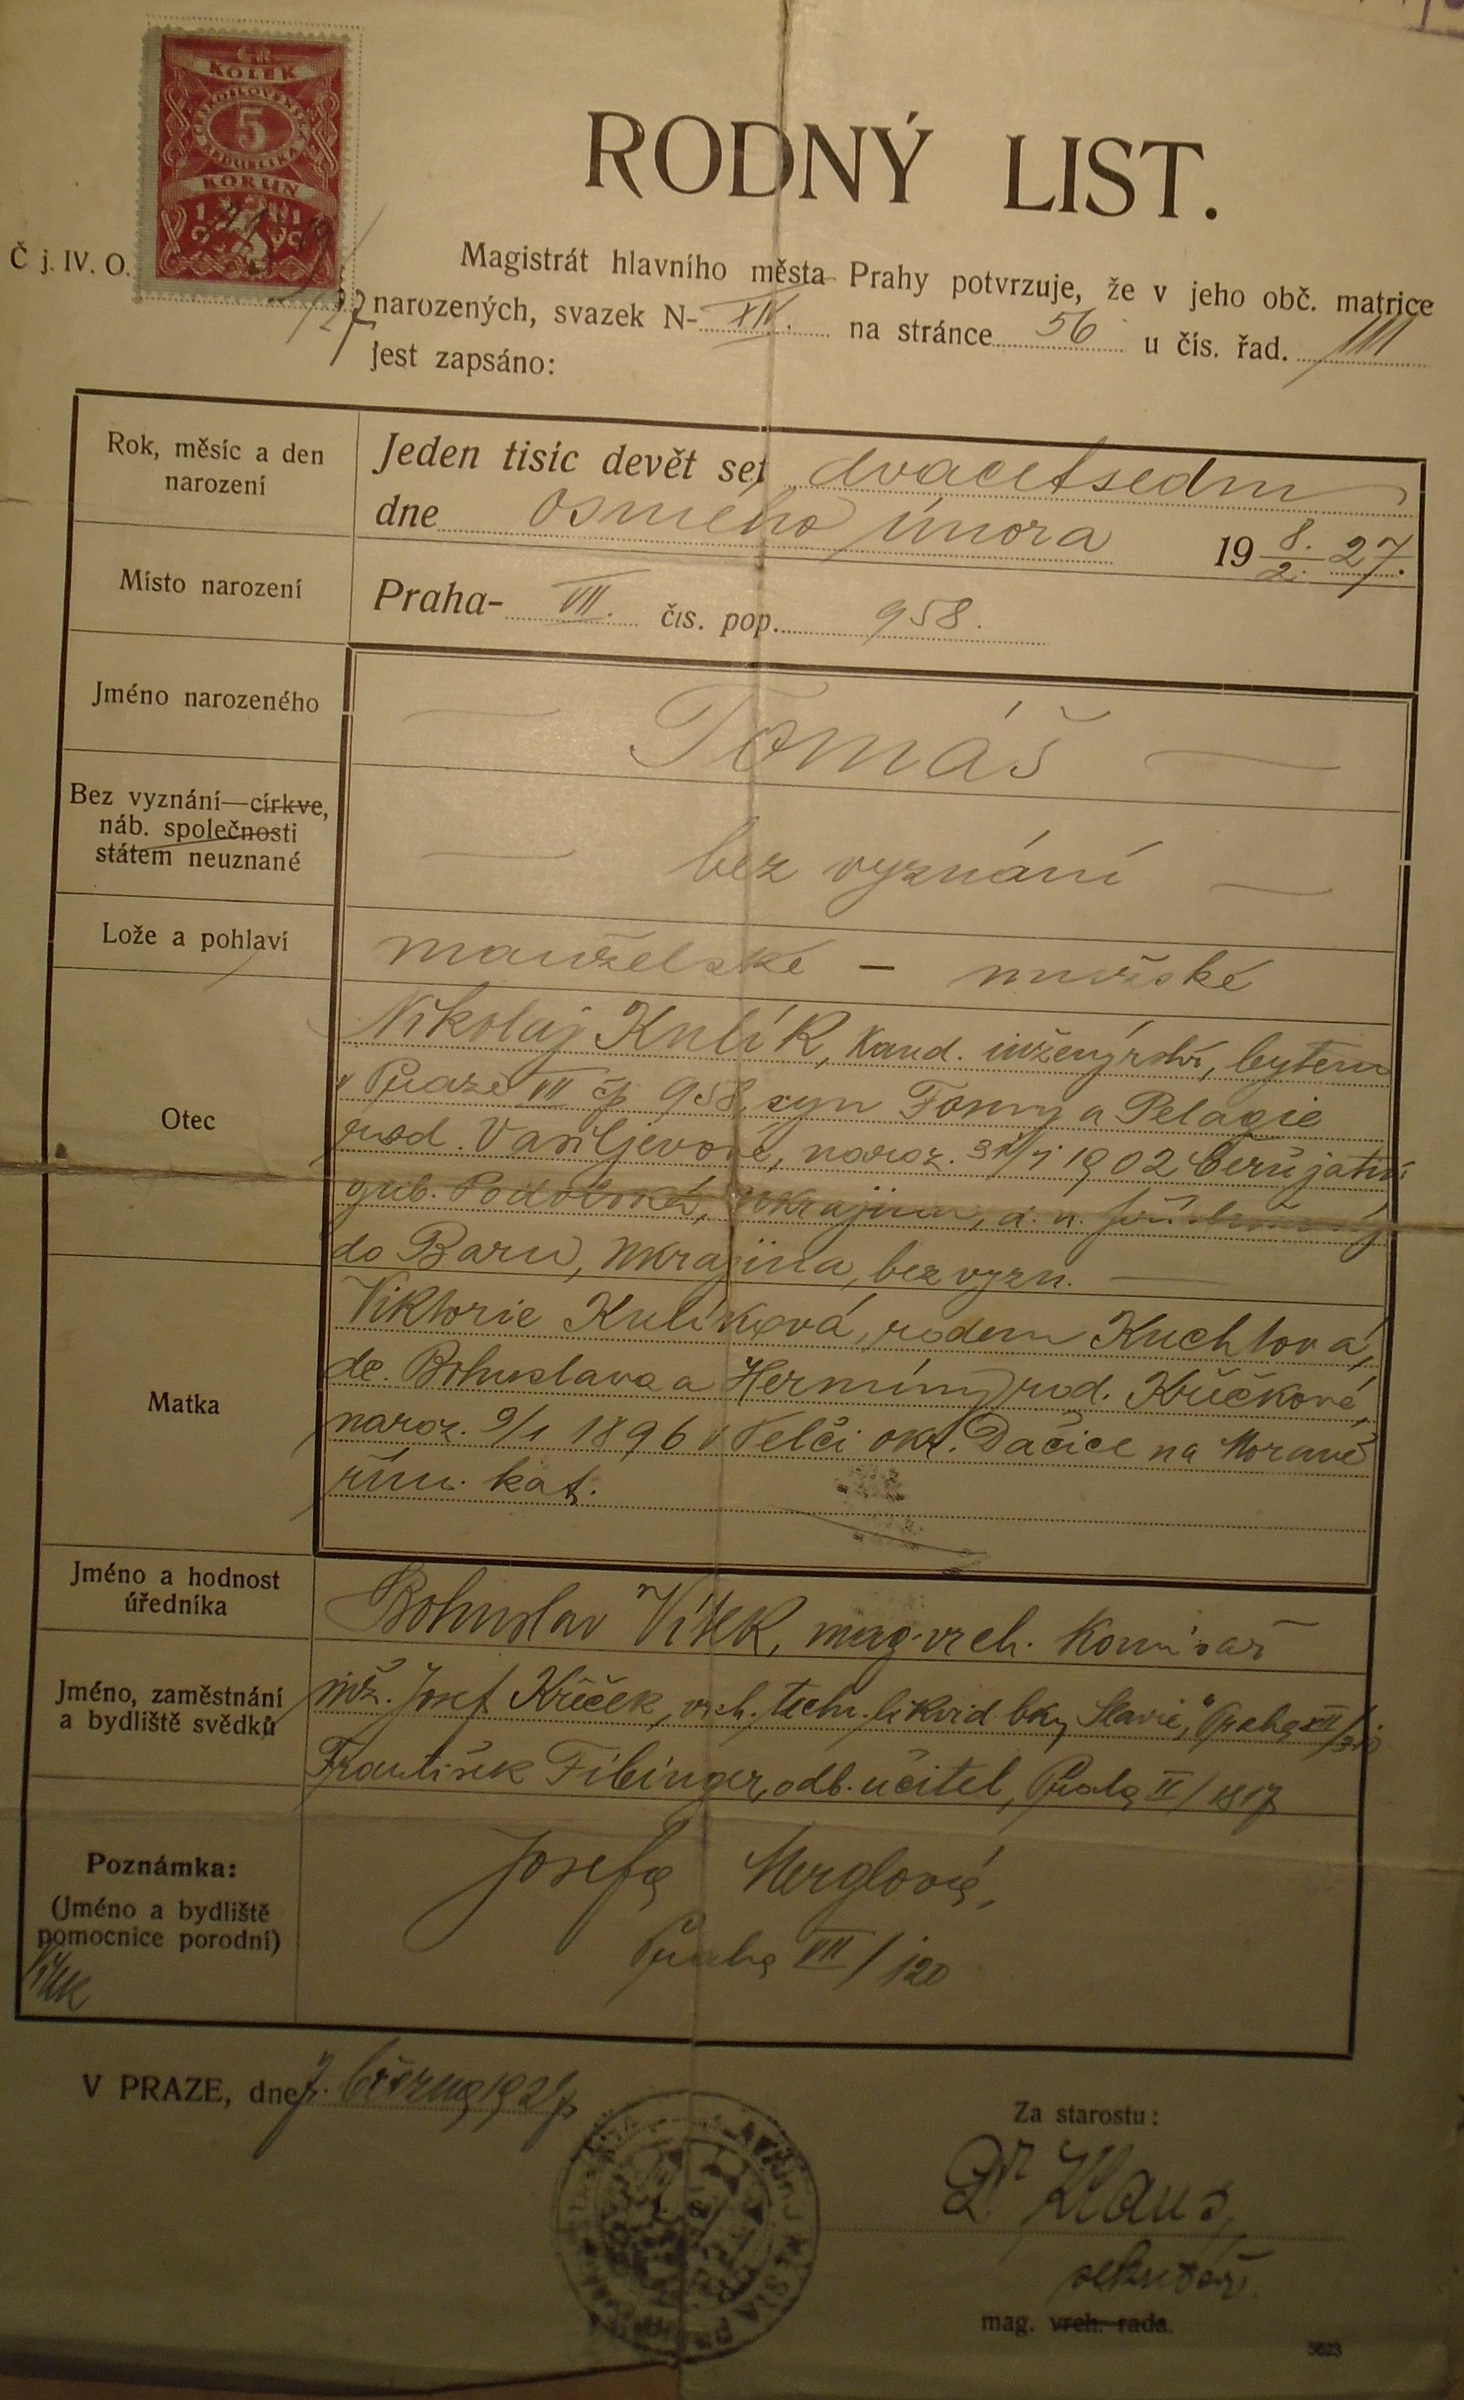 ČR
KOLEK
ČESKOSLOVENSKÁ
5
REPUBLIKA
KORUN
1919
RODNÝ LIST.
Č j. IV. O.
Magistrát hlavního města Prahy potvrzuje, že v jeho obč. matrice
/27 narozených, svazek N- XIV. na stránce 56 u čís. řad. 111
jest zapsáno:
Rok, měsíc a den
narození
Jeden tisíc devět set dvacetsedm
dne osmého února 19 8./2. 27.
Místo narození
Praha- VII. čís. pop. 958.
Jméno narozeného
Tomáš
Bez vyznání—církve,
náb. společnosti
státem neuznané
bez vyznání
Lože a pohlaví
manželské — mužské
Otec
Nikolaj Kulík, kand. inženýrství, bytem
v Praze VII čp 958, syn Fomy a Pelagie
rod. Vasiljevové, naroz. 1902
gub. Podolské, Ukrajina, d. n.
do Baru, Ukrajina, bez vyzn.
Matka
Viktorie Kulíková, rodem Kuchtová,
dc. Bohuslava a Hermíny rod. Křičkové,
naroz. 9/1 1896 v Telči okr. Dačice na Moravě
řím. kat.
Jméno a hodnost
úředníka
Bohuslav Vítek, mag. vrch. komisař
Jméno, zaměstnání
a bydliště svědků
inž. Josef Křiček, vrch. techn. likvid bky Slavie," Praha XII/
František Fibinger, odb. učitel, Praha II/1817
Poznámka:
(Jméno a bydliště
pomocnice porodní)
Vítek
Josefa Merglová,
Praha VII/120
V PRAZE, dne 7. března 1927
Za starostu:
Dr Klaus,
sekretář.
mag. vrch. rada.
5623